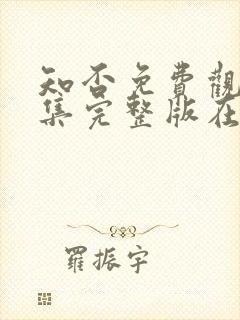 知否免費觀
集完整版在
羅振宇